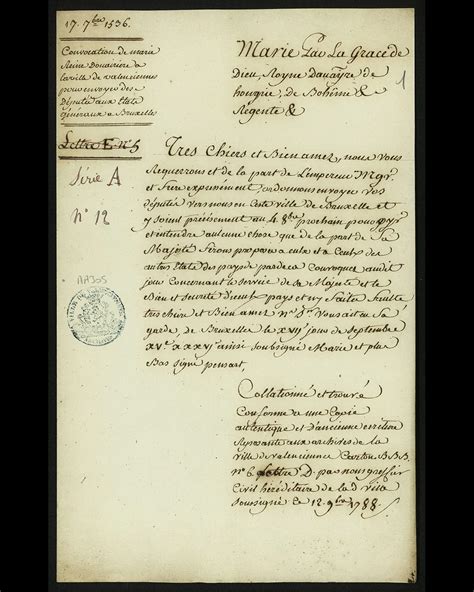 17. 7bre 1536.
Convocation de marie
Reine Douairière a
la ville de valenciennes
pour envoyer des
Députés aux Etats
généraux a Bruxelles
Lettre E. n° 5
Série A
N° 12
AA305
1
Marie Par La Grace de
Dieu, Royne Douayre de
hongrie, de Boheme &
Régente &
Tres chiers et Bien amez, nous vous
Requerrons et de la part de L'empereur Mgr.
et frere expressement ordonnons envoyer vos
députés vers nous en ceste ville de Bruxelle et
y soient précisément au 4. 8bre prochain pour oyr
et entendre aulcune chose que de la part de Sa
Majesté ferons proposer a eulx et a Ceulx des
autres Etats des pays de pardeca Convoquez audit
jour Concernant le service de Sa Majesté et le
Bien et Sureté d'iceulx pays et n'y faites faulte
tres chiers et Bien amez nre Sr. Vous ait en Sa
garde, de Bruxelle le xvije jour de Septembre
xve. xxxvj ainsi Soubsigné Marie et plus
Bas Signé pensart,
Collationné et trouvé
Conforme a une Copie
autentique et d'ancienne ecriture
Reposante aux archives de la
ville de valenciennes Carton BBB.
N° 6. Lettre D. par nous greffier
Civil héréditaire de la d. ville
Soussigné Le 12. 9bre 1788.